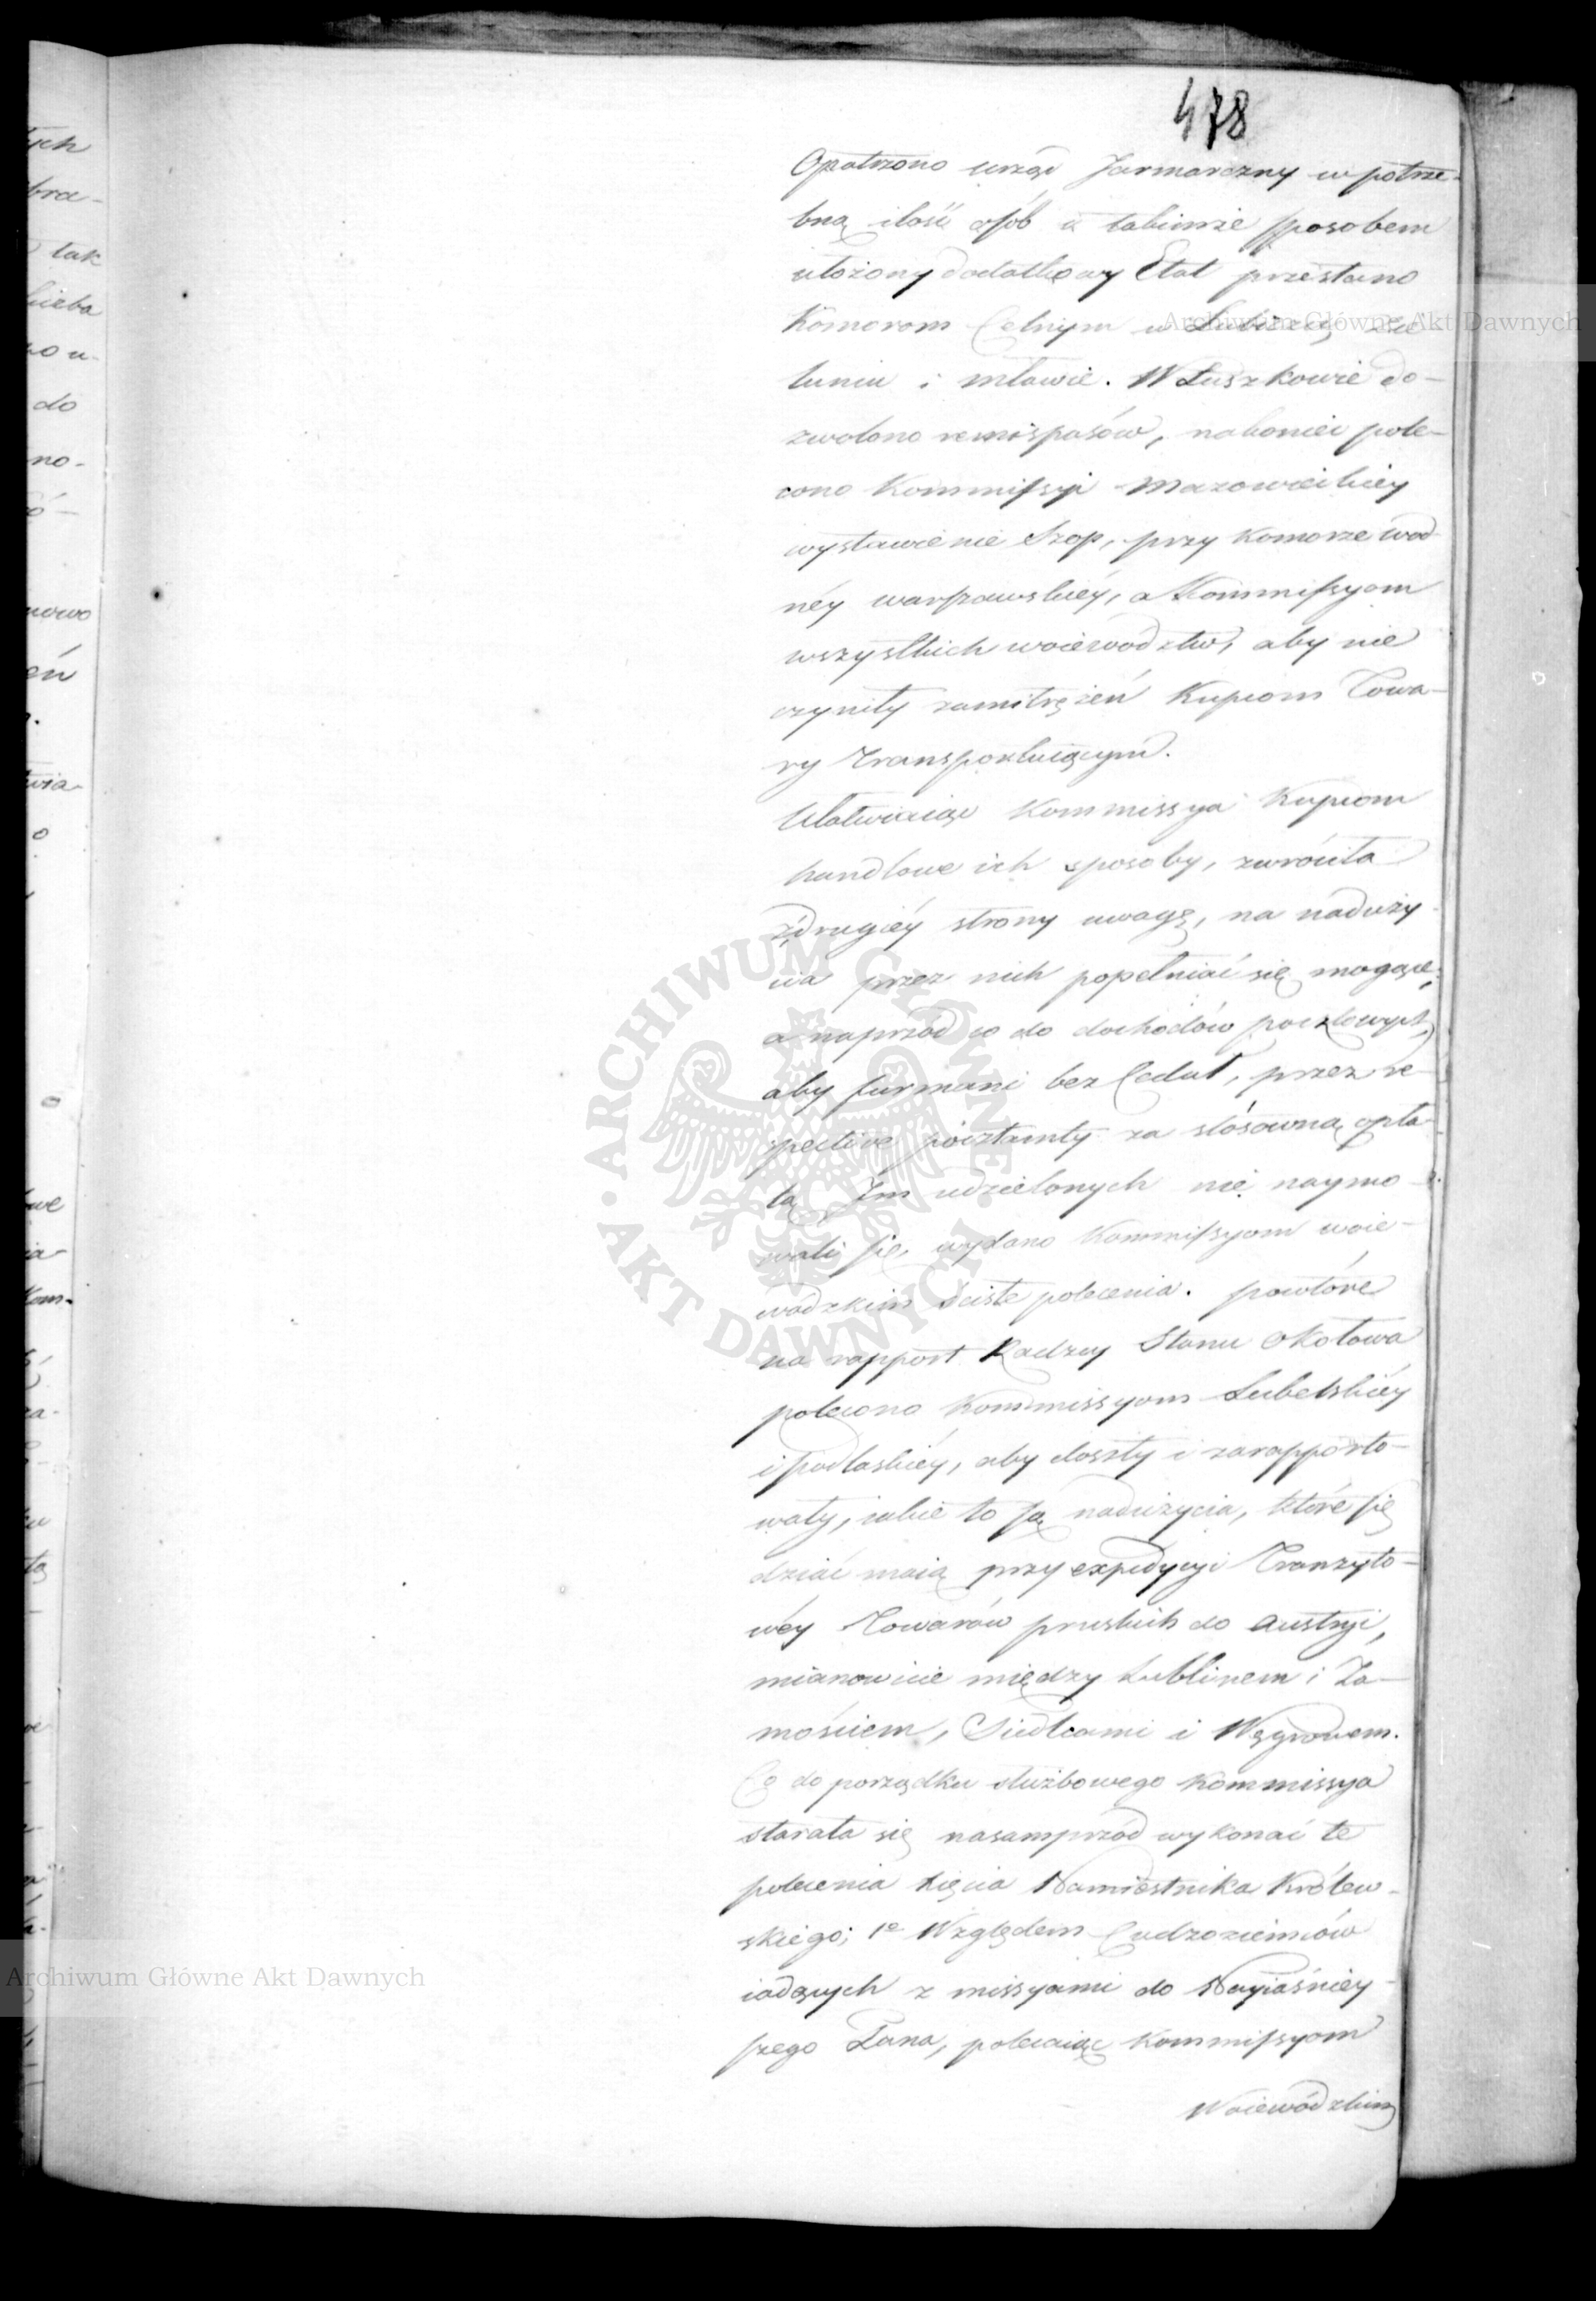 478
Opatrzono urząd Jarmarczny w potrze-
bną ilość osób a takimże sposobem
ułożony dodatkowy Etat przesłano
Komorom Celnym w
luniu i Mławie. W Łuszkowie do-
zwolono remispasów, nakoniec pole-
cono Kommissyi Mazowieckiey
wystawienie Szop, przy Komorze wod
néy warszawskiéy, a Kommissyom
wszystkich woiewództw, aby nie
czyniły zamitrężeń Kupcom Towa-
ry Transportuiącym.
Ułatwiaiąc Kommissya Kupcom
handlowe ich sposoby, zwróciła
z drugiéy strony uwagę, na naduży-
cia przez nich popełniać się mogące;
a naprzód co do dochodów pocztowych,
aby furmani bez Ceduł, przez re-
spective pocztamty za stósowną opła-
tą Im udzielonych nie naymo-
wali się, wydano Kommissyom woie-
wódzkim ścisłe polecenia. powtóre
na rapport Radzcy Stanu Okołowa
polecono Kommissyom Lubelskiéy
i podlaskiéy, aby doszły i zarapporto-
wały, iakie to są nadużycia, które się
dziać maią przy expedycyi Tranzyto-
wéy Towarów pruskich do Austryi,
mianowicie między Lublinem i Za-
mościem, Siedlcami i Węgrowem.
Co do porządku służbowego Kommissya
starała się nasamprzód wykonać te
polecenia Xięcia Namiestnika Królew-
skiego; 1e Względem Cudzoziemców
iadących z missyami do Nayiaśniéy-
szego Pana, polecaiąc Kommissyom
Woiewódzkim
Archiwum Główne Akt Dawnych
ARCHIWUM GŁÓWNE AKT DAWNYCH
Archiwum Główne Akt Dawnych